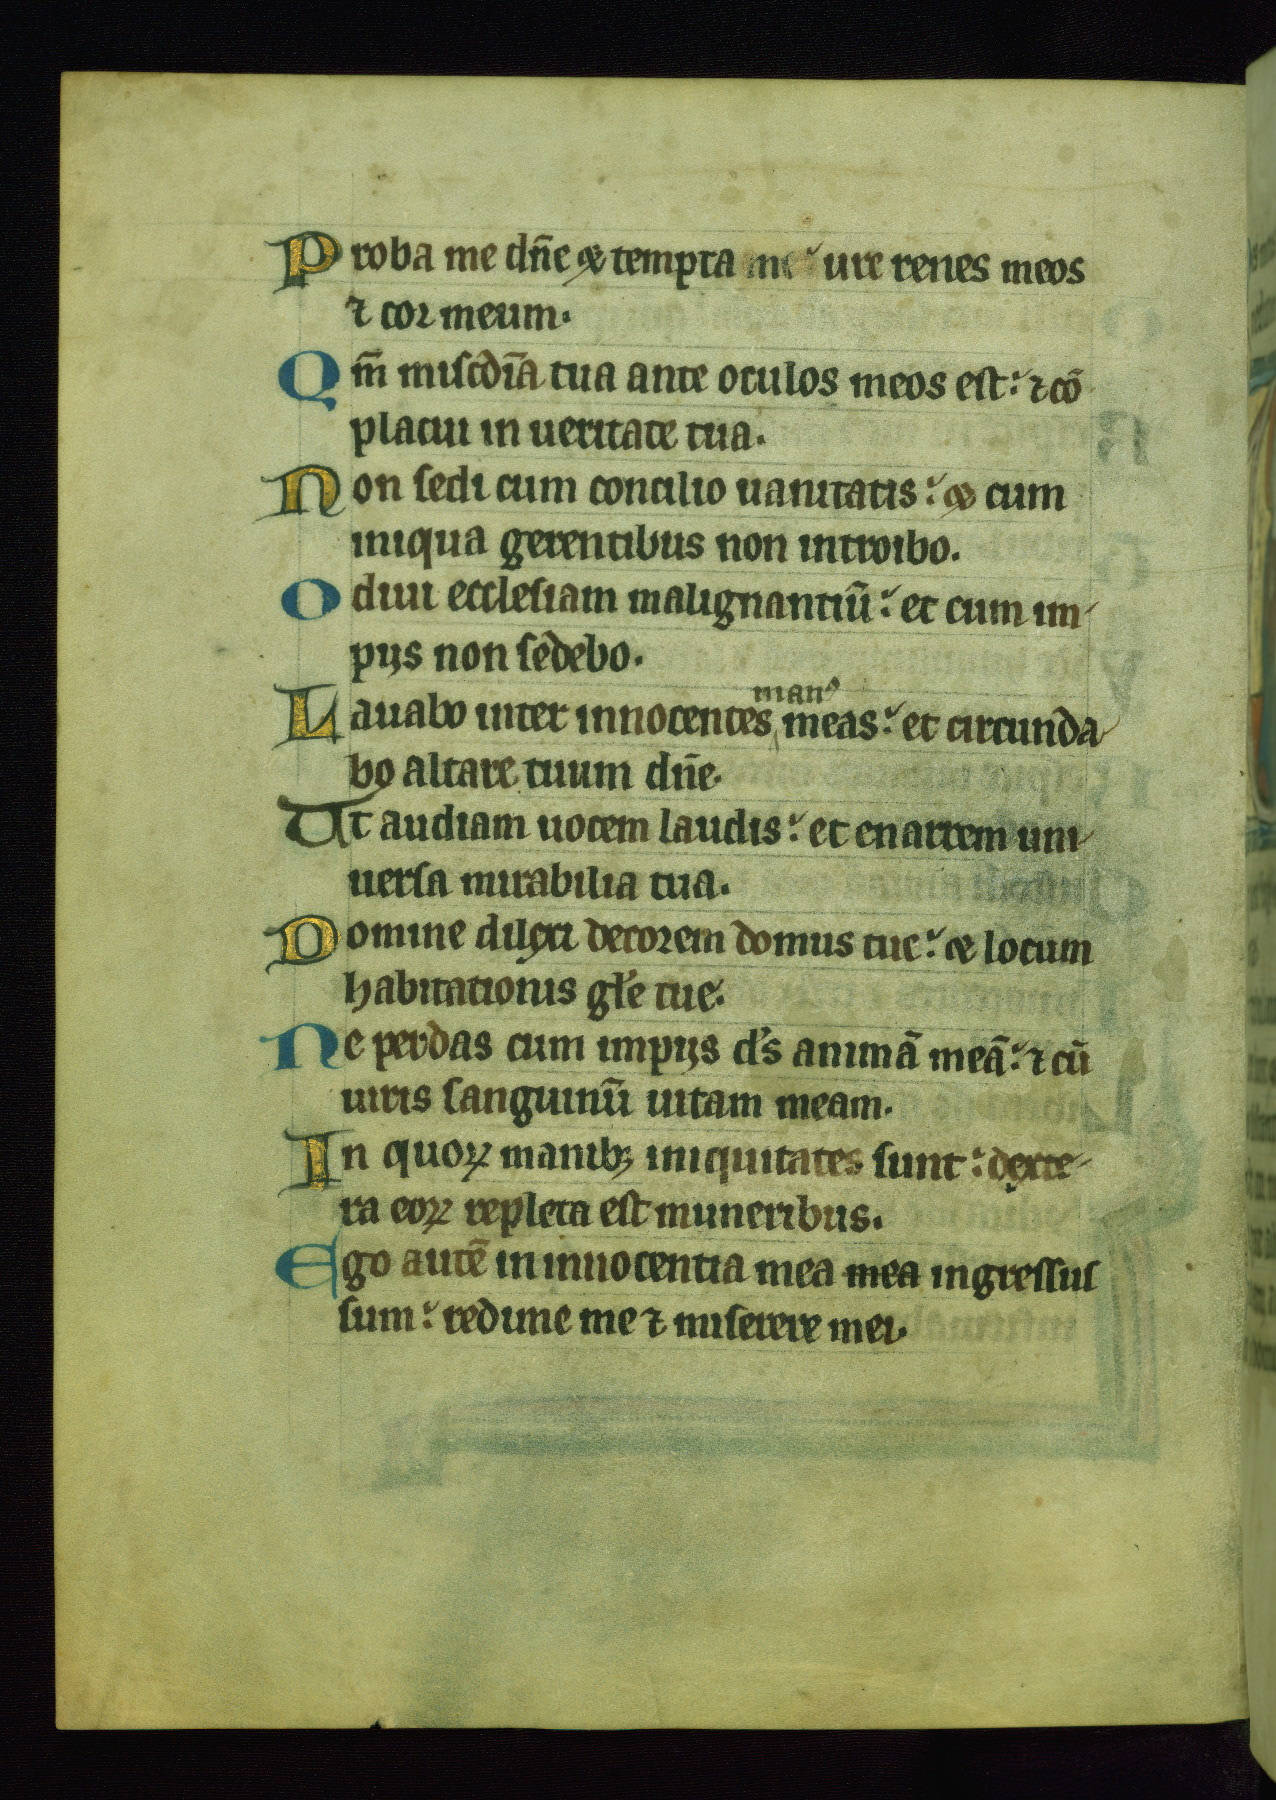 Proba me dn̄e ⁊ tempta me ure renes meos
⁊ cor meum.
Qm̄ misc̄dīa tua ante oculos meos est: ⁊ cō
placui in ueritate tua.
Non sedi cum concilio uanitatis: ⁊ cum
iniqua gerentibus non introibo.
Odiui ecclesiam malignantiū: et cum im
pijs non sedebo.
manꝰ
Lauabo inter innocentes meas: et circunda
bo altare tuum dn̄e.
Ut audiam uocem laudis: et enarrem uni
uersa mirabilia tua.
Domine dilexi decorem domus tue: et locum
habitationis gl̄e tue.
Ne perdas cum impijs d̄s animā meā: ⁊ cū
uiris sanguinū uitam meam.
In quoꝝ manibꝫ iniquitates sunt: dexte
ra eoꝝ repleta est muneribus.
Ego autē in innocentia mea mea ingressus
sum: redime me ⁊ miserere mei.